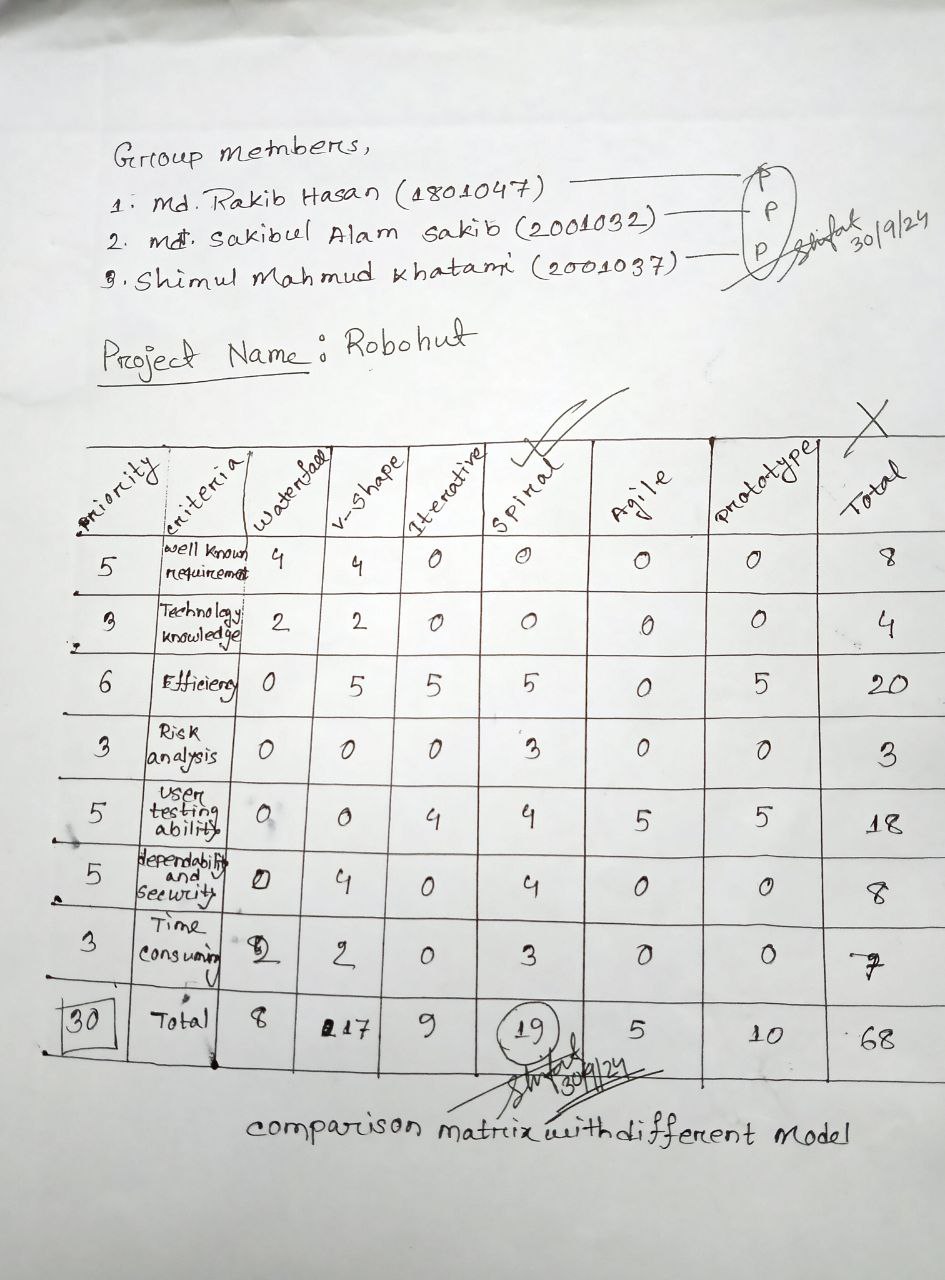 Group members,
1. Md. Rakib Hasan (1801047) P
2. Md. Sakibul Alam Sakib (2001032) P
3. Shimul Mahmud Khatami (2001037) P Shifat 30/9/24
Project Name: Robohut
Priority Criteria Waterfall V-shape Iterative Spiral Agile Prototype Total
5 well known requiremet 4 4 0 0 0 0 8
3 Technology knowledge 2 2 0 0 0 0 4
6 Efficiency 0 5 5 5 0 5 20
3 Risk analysis 0 0 0 3 0 0 3
5 user testing ability 0 0 4 4 5 5 18
5 dependability and security 0 4 0 4 0 0 8
3 Time consuming 2 2 0 3 0 0 7
30 Total 8 17 9 19 5 10 68
Shifat 30/9/24
comparison matrix with different model